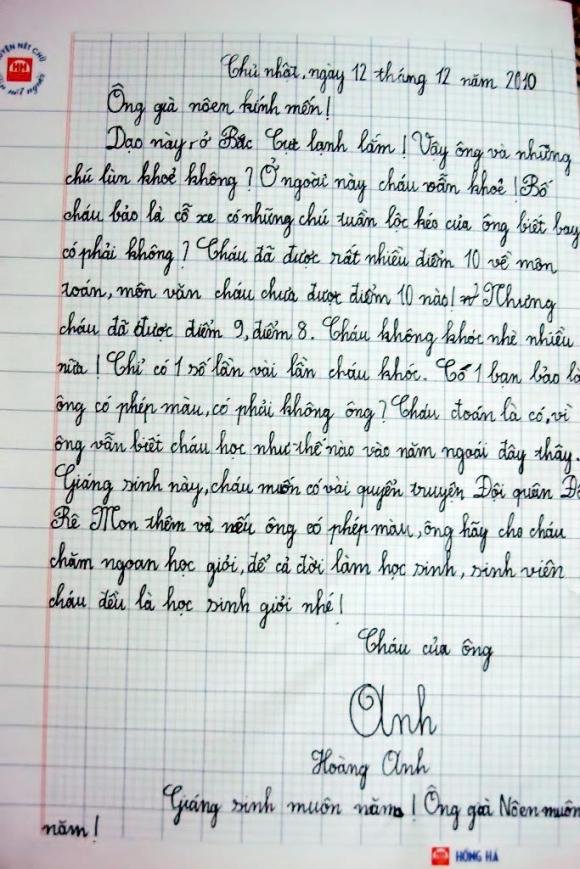 HH
Chủ nhật, ngày 12 tháng 12 năm 2010
Ông già nôen kính mến!
Dạo này, ở Bắc Cực lạnh lắm! Vậy ông và những
chú lùn khoẻ không? Ở ngoài này cháu vẫn khoẻ! Bố
cháu bảo là cỗ xe có những chú tuần lộc kéo của ông biết bay
có phải không? Cháu đã được rất nhiều điểm 10 về môn
toán, môn văn cháu chưa được điểm 10 nào! Nhưng
cháu đã được điểm 9, điểm 8. Cháu không khóc nhè nhiều
nữa! Chỉ có 1 số lần vài lần cháu khóc. Có 1 bạn bảo là
ông có phép màu, có phải không ông? Cháu đoán là có, vì
ông vẫn biết cháu học như thế nào vào năm ngoái đây thây.
Giáng sinh này, cháu muốn có vài quyển truyện Đội quân Đô
Rê Mon thêm và nếu ông có phép màu, ông hãy cho cháu
chăm ngoan học giỏi, để cả đời làm học sinh, sinh viên
cháu đều là học sinh giỏi nhé!
Cháu của ông
Anh
Hoàng Anh
Giáng sinh muôn năm! Ông già Nôen muôn
năm!
HH HỒNG HÀ